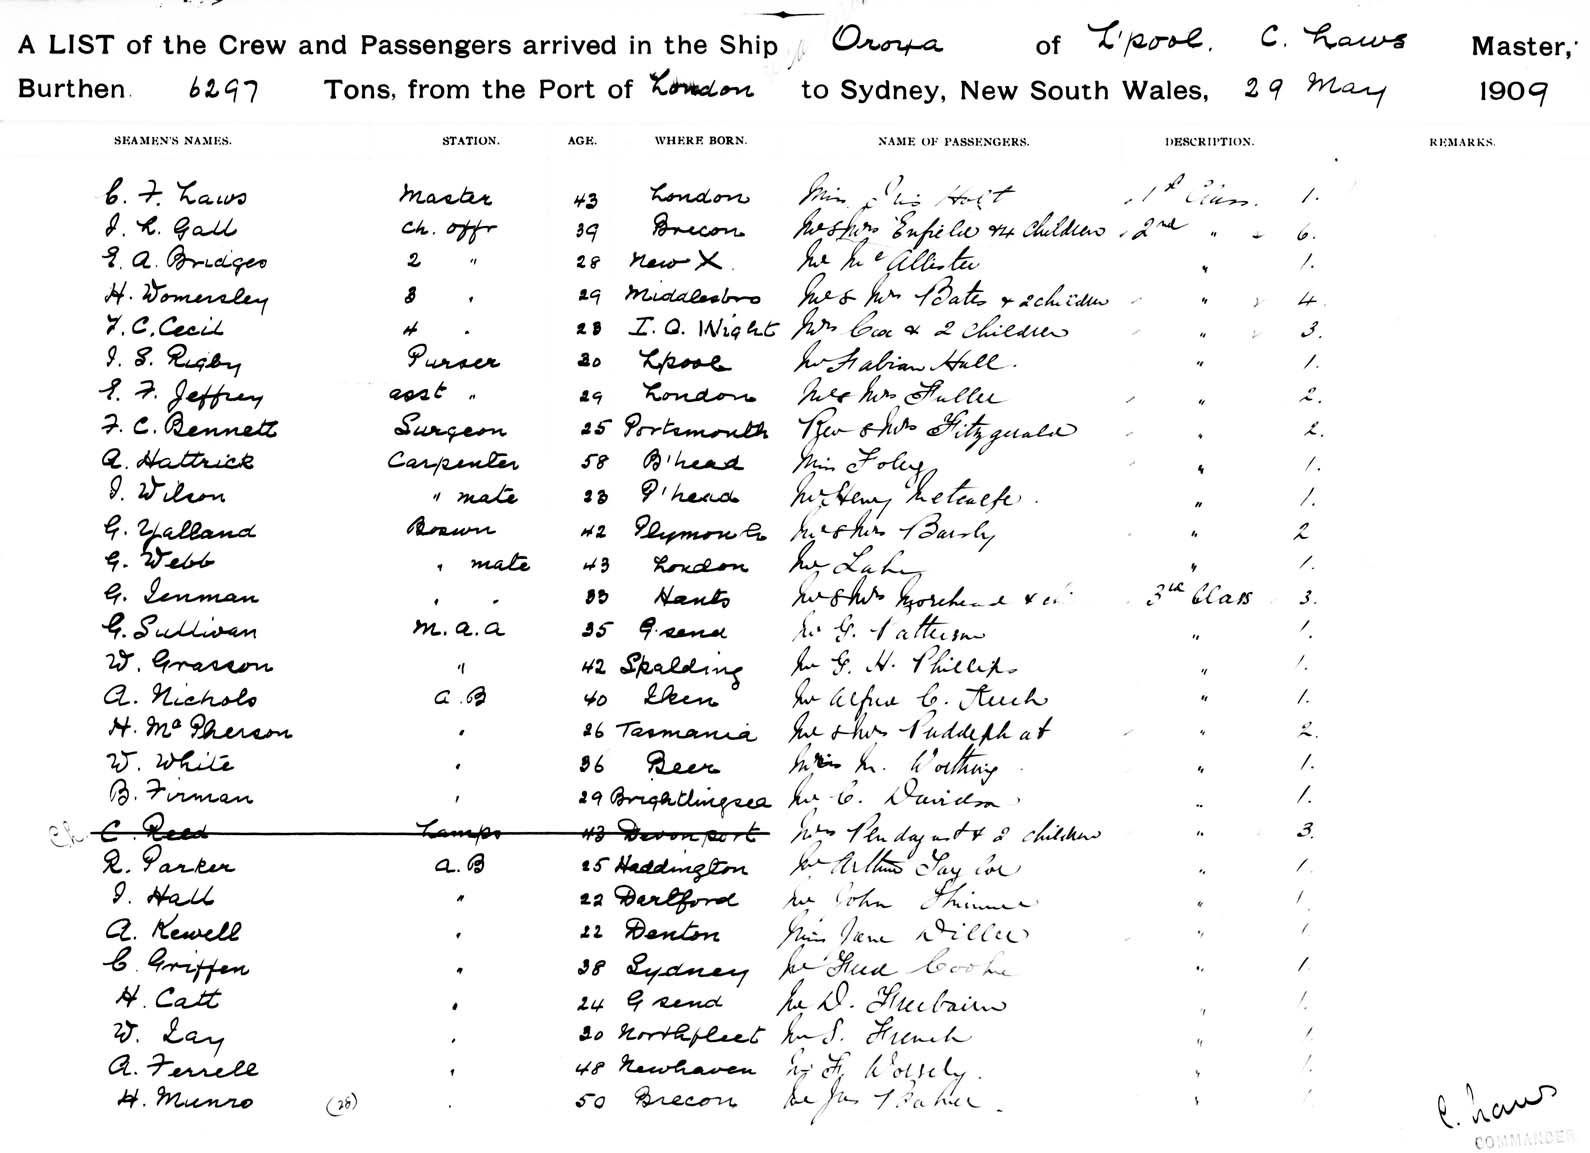 A LIST of the Crew and Passengers arrived in the Ship Oroya of L'pool. C. Laws Master,
Burthen 6297 Tons, from the Port of London to Sydney, New South Wales, 29 May 1909
SEAMEN'S NAMES. STATION. AGE. WHERE BORN. NAME OF PASSENGERS. DESCRIPTION. REMARKS.
C. F. Laws Master 43 London Miss Holt 1st Class. 1.
J. L. Gall Ch. offr 39 Brecon Mr & Mrs Enfield & 4 Children 2nd " 6.
E. A. Bridges 2 " 28 New X. Mr McAllister " 1.
H. Womersley 3 " 29 Middlesbro Mr & Mrs Bates & 2 children " 4.
F. C. Cecil 4 " 28 I. O. Wight Mrs Cox & 2 Children " 3.
J. S. Rigby Purser 30 Lpool Mr Fabian Hall. " 1.
E. F. Jeffrey asst " 29 London Mr & Mrs Fuller " 2.
F. C. Bennett Surgeon 25 Portsmouth Rev & Mrs Fitzgerald " 2.
A. Hattrick Carpenter 58 B'head Miss Foley " 1.
J. Wilson " mate 23 P'head Mr Henry Metcalfe. " 1.
G. Yalland Boswn 42 Plymouth Mr & Mrs " 2
G. Webb " mate 43 London Mr " 1.
G. Jenman " " 33 Hants Mr & Mrs Morehead & 3rd Class 3.
G. Sullivan M. a. a 35 G'send Mr G. Patterson " 1.
W. Grasson " 42 Spalding Mr G. H. Phillips " 1.
A. Nichols a. B 40 Iken Mr Alfred C. " 1.
H. McPherson " 26 Tasmania Mr & Mrs Puddephat " 2.
W. White " 36 Beer Miss M. Worthing " 1.
B. Firman " 29 Brightlingsea Mr C. Davidson " 1.
C. Reed Lamps 43 Devonport Mrs & 2 children " 3.
R. Parker a. B 25 Haddington Mr Arthur Taylor " 1.
J. Hall " 22 Dartford Mr John " 1.
A. Kewell " 22 Denton Miss Jane " 1.
C. Griffen " 38 Sydney Mr Fred Cooke " 1.
H. Catt " 24 G send Mr D. Freebairn " 1.
W. Lay " 30 Northfleet Mr S. French " 1.
A. Ferrell " 48 Newhaven Mr F. Worsely. " 1.
H. Munro (28) " 50 Brecon Mr Jas " 1.
C. Laws
COMMANDER